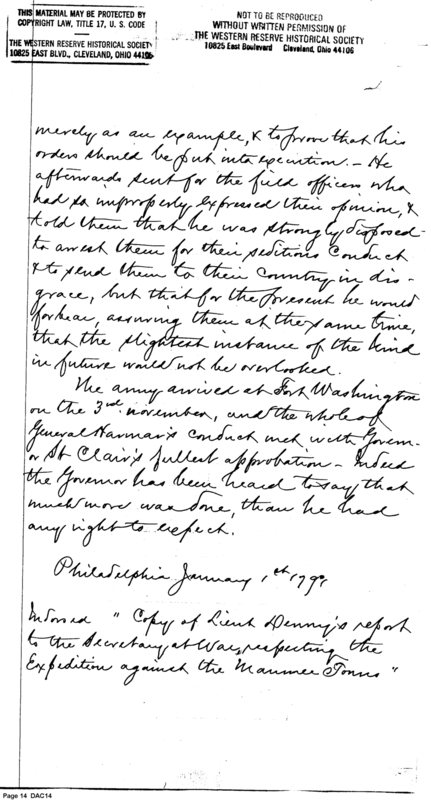 THIS MATERIAL MAY BE PROTECTED BY
COPYRIGHT LAW, TITLE 17, U. S. CODE
THE WESTERN RESERVE HISTORICAL SOCIETY
10825 EAST BLVD., CLEVELAND, OHIO 44106
NOT TO BE REPRODUCED
WITHOUT WRITTEN PERMISSION OF
THE WESTERN RESERVE HISTORICAL SOCIETY
10825 East Boulevard Cleveland, Ohio 44106
merely as an example, & to prove that his
orders should be put into execution. – He
afterwards sent for the field officers who
had so improperly expressed their opinion, &
told them that he was strongly disposed
to arrest them for their seditious conduct
& to send them to their country in dis-
grace, but that for the present he would
forbear, assuring them at the same time,
that the slightest instance of the kind
in future would not be overlooked.
The army arrived at Fort Washington
on the 3rd november, and the whole of
General Harmar's conduct met with Govern-
or St Clair's fullest approbation – Indeed
the Governor has been heard to say, that
much more was done, than he had
any right to expect.
Philadelphia January 1st 1791
Indorsed " Copy of Lieut Denny's report
to the Secretary at War, respecting the
Expedition against the Maumee Towns "
Page 14 DAC14